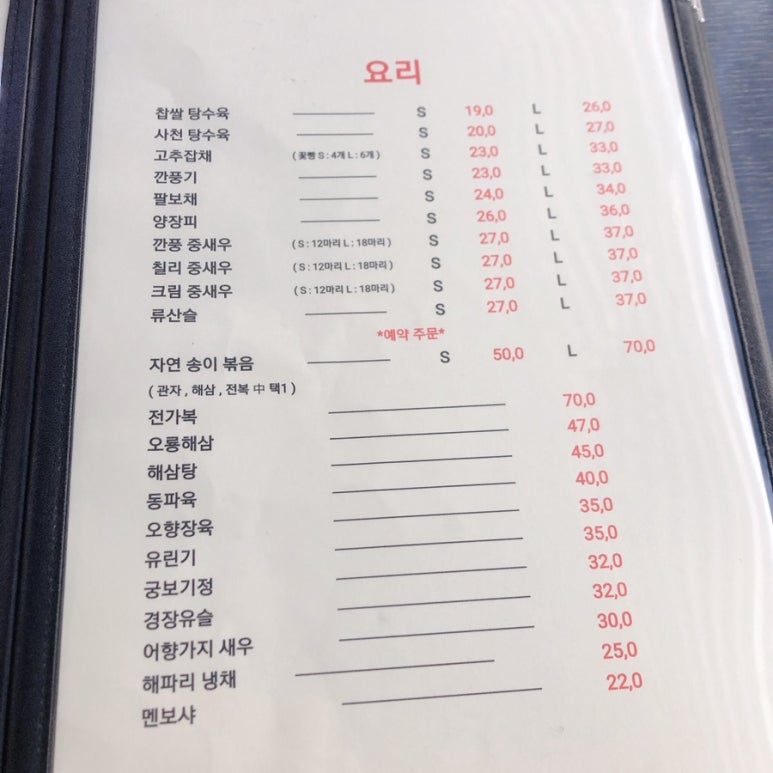 요리
찹쌀 탕수육 S 19,0 L 26,0
사천 탕수육 S 20,0 L 27,0
고추잡채 ( 꽃빵 S : 4개 L : 6개 ) S 23,0 L 33,0
깐풍기 S 23,0 L 33,0
팔보채 S 24,0 L 34,0
양장피 S 26,0 L 36,0
깐풍 중새우 ( S : 12마리 L : 18마리 ) S 27,0 L 37,0
칠리 중새우 ( S : 12마리 L : 18마리 ) S 27,0 L 37,0
크림 중새우 ( S : 12마리 L : 18마리 ) S 27,0 L 37,0
류산슬 S 27,0 L 37,0
*예약 주문*
자연 송이 볶음 S 50,0 L 70,0
( 관자 , 해삼 , 전복 中 택1 )
전가복 70,0
오룡해삼 47,0
해삼탕 45,0
동파육 40,0
오향장육 35,0
유린기 35,0
궁보기정 32,0
경장유슬 32,0
어향가지 새우 30,0
해파리 냉채 25,0
멘보샤 22,0